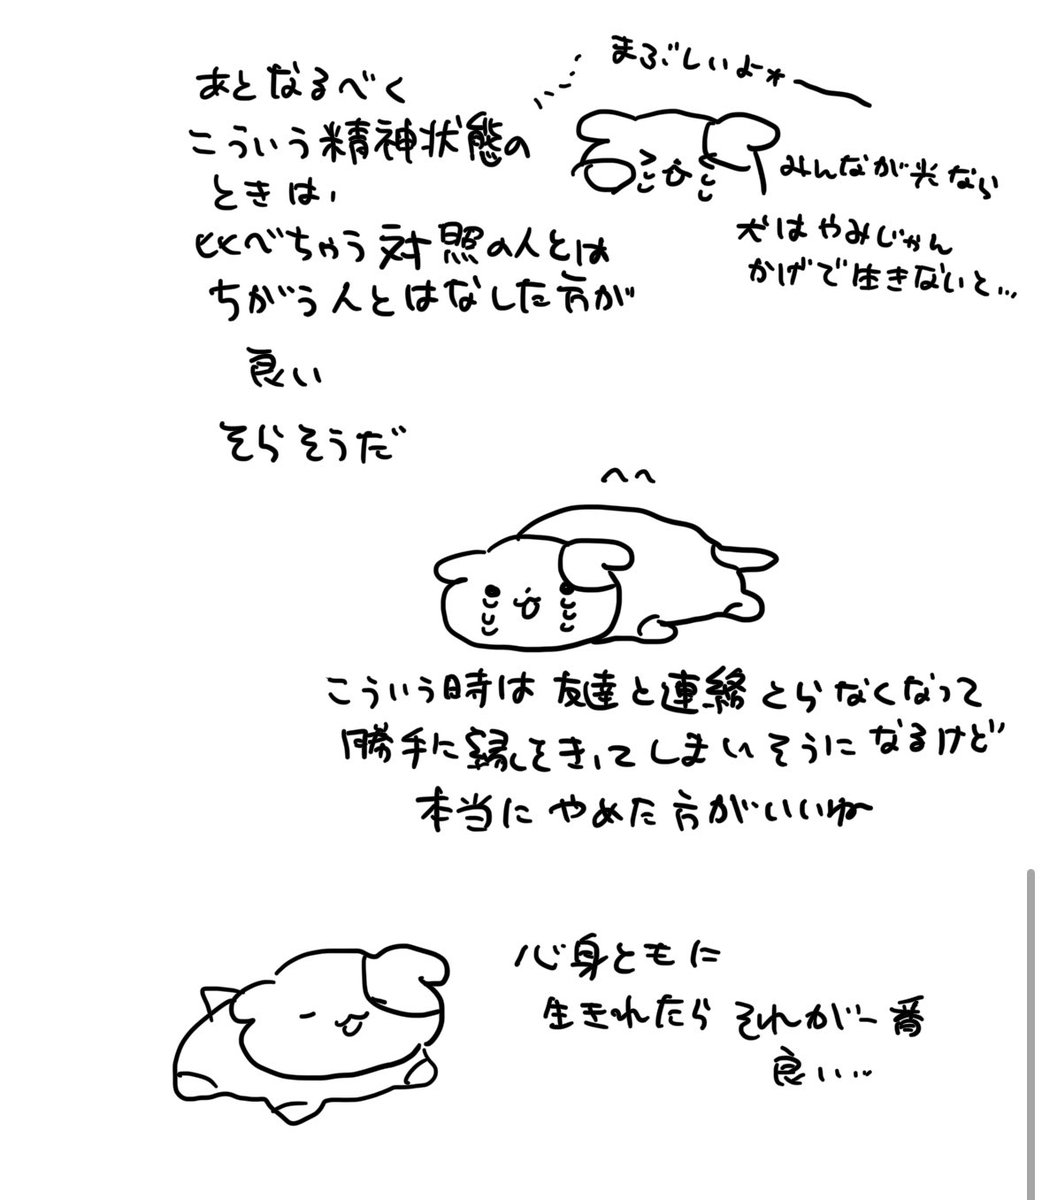 あとなるべく
こういう精神状態の
ときは、
比べちゃう対照の人とは
ちがう人とはなした方が
良い
そらそうだ
まぶしいよ*
みんなが光なら
犬はやみじゃん
かげで生きないと…
こういう時は友達と連絡とらなくなって
勝手に縁をきってしまいそうになるけど
本当にやめた方がいいね
心身ともに
生きれたらそれが一番
良い…